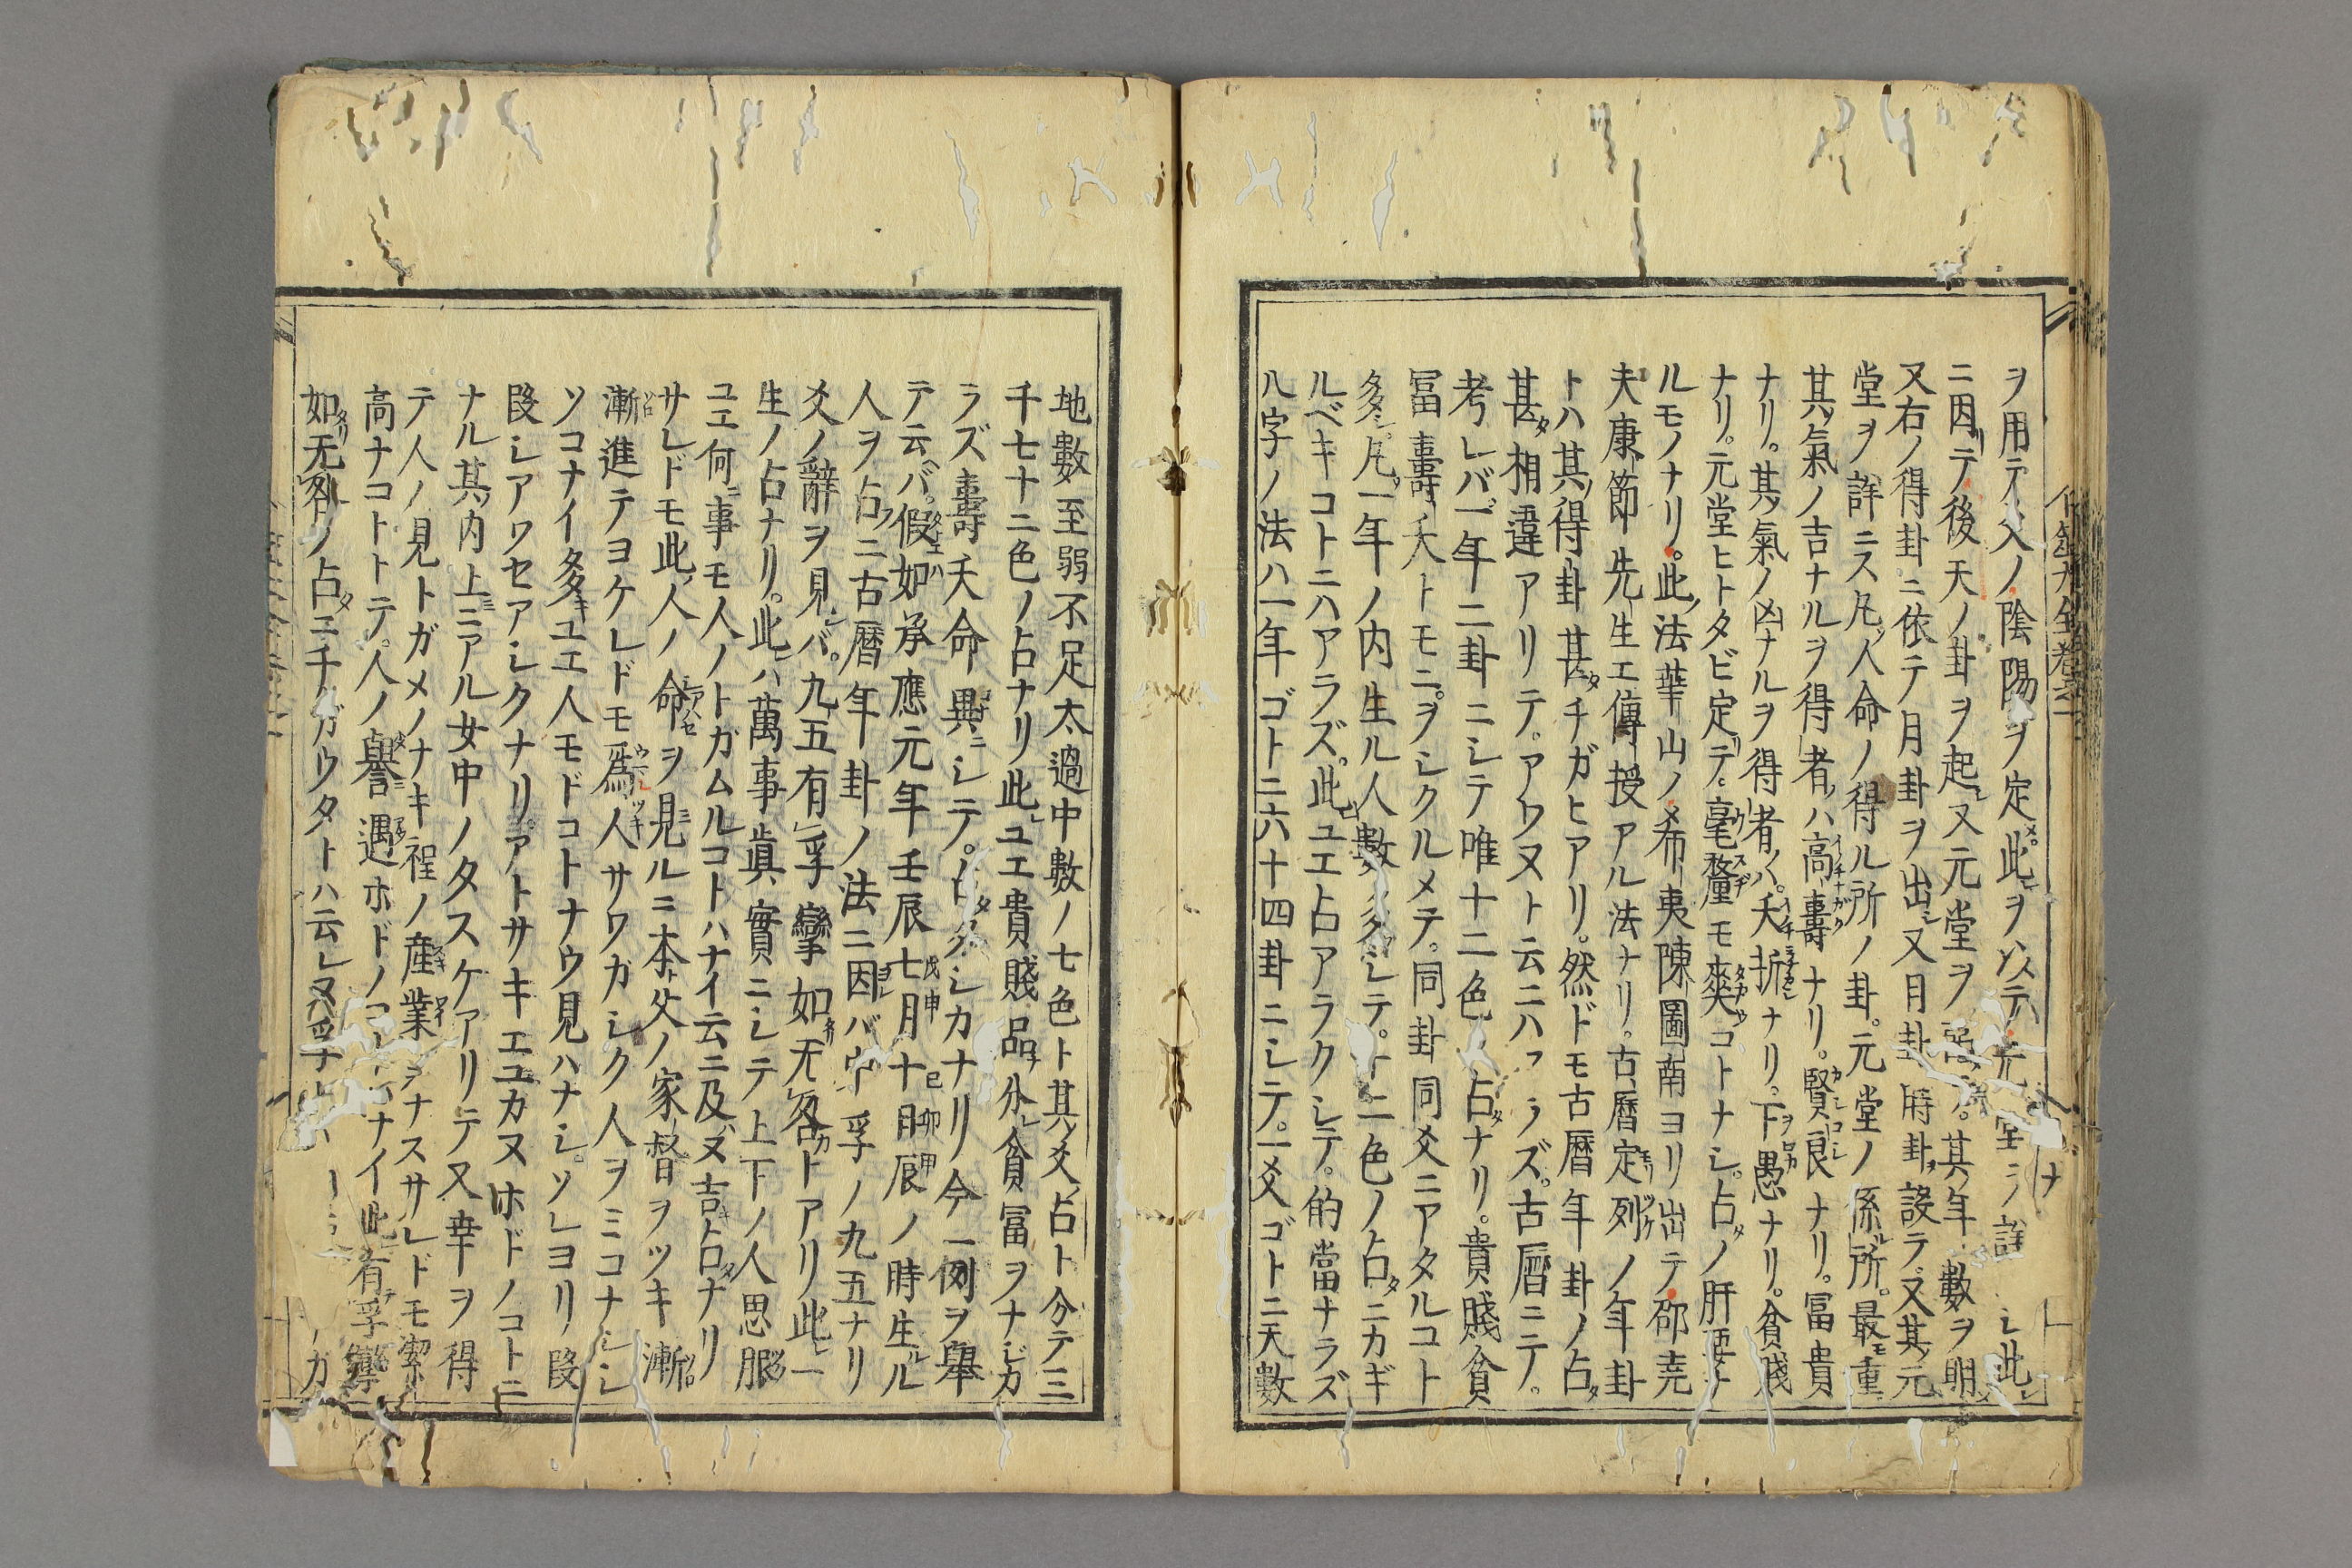 ヲ用テ爻ノ陰陽ヲ定此ヲ以テ元堂ヲ詳ニシ此
ニ因テ後天ノ卦ヲ起又元堂ヲ其年數ヲ明
又右ノ得卦ニ依テ月卦ヲ出又日卦時卦設テ又其元
堂ヲ詳ニス凡人命ノ得ル所ノ卦元堂ノ係所最重
其氣ノ吉ナルヲ得者ハ高壽ナリ賢良ナリ冨貴
ナリ其氣ノ凶ナルヲ得者ハ夭折ナリ下愚ナリ貧賤
ナリ元堂ヒトタビ定テ毫釐モ爽コトナシ占ノ肝要ナ
ルモノナリ此法華山ノ希夷陳圖南ヨリ出テ邵堯
夫康節先生エ傳授アル法ナリ古暦定列ノ年卦
トハ其得卦甚チガヒアリ然ドモ古暦年卦ノ占
甚相違アリテアワヌト云ニハアラズ古暦ニテ
考レバ一年二卦ニシテ唯十二色ノ占ナリ貴賤貧
冨壽夭トモニヲシクルメテ同卦同爻ニアタルコト
多シ凡一年ノ内生ル人數多シテ十二色ノ占ニカギ
ルベキコトニハアラズ此ユエ占アラクシテ的當ナラズ
八字ノ法ハ一年ゴトニ六十四卦ニシテ一爻ゴトニ天數
地數至弱不足太過中數ノ七色ト其爻占ト分テ三
千七十二色ノ占ナリ此ユエ貴賤品分貧冨ヲナジカ
ラズ壽夭命異ニシテ占タクシカナリ今一例ヲ舉
テ云バ假如承應元年壬辰七月戊申十日己卯辰ノ時生ル
人ヲ占ニ古暦年卦ノ法ニ因バ中孚ノ九五ナリ
爻ノ辭ヲ見バ九五有孚攣如无咎トアリ此一
生ノ占ナリ此ハ萬事眞實ニシテ上下ノ人思服
ユエ何事モ人ノトガムルコトハナイ云ニ及ヌ吉占ナリ
サレドモ此人ノ命ヲ見ルニ本父ノ家督ヲツキ漸
漸進テヨケレドモ爲人サワガシク人ヲミコナシシ
ソコナイ多ユエ人モドコトナウ見ハナシソレヨリ段
段シアワセアシクナリアトサキエユカヌホドノコトニ
ナル其内上ニアル女中ノタスケアリテ又幸ヲ得
テ人ノ見トガメノナキ程ノ産業ヲナスサレドモ繁
高ナコトトテ人ノ譽遇ホドノコトハナイ此有孚攣
如无咎ノ占ニチガウタトハ云レヌ孚